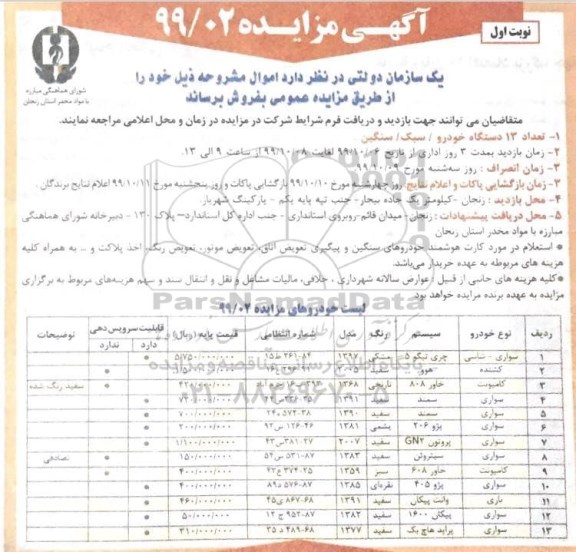 آگهی مزایده ۹۹/۰۲
نوبت اول
شورای هماهنگی مبارزه
با مواد مخدر استان زنجان
یک سازمان دولتی در نظر دارد اموال مشروحه ذیل خود را
از طریق مزایده عمومی بفروش برساند
متقاضیان می توانند جهت بازدید و دریافت فرم شرایط شرکت در مزایده در زمان و محل اعلامی مراجعه نمایند.
۱- تعداد ۱۳ دستگاه خودرو / سبک/ سنگین
۲- زمان بازدید بمدت ۳ روز اداری از تاریخ لغایت ۹۹/۱۰/۰۸ از ساعت ۹ الی ۱۳.
۳- زمان انصراف : روز سه‌شنبه مورخ
۳- زمان بازگشایی پاکات و اعلام نتایج روز چهارشنبه مورخ ۹۹/۱۰/۱۰ بازگشایی پاکات و روز پنجشنبه مورخ ۹۹/۱۰/۱۱ اعلام نتایج برندگان.
۴- محل بازدید : زنجان -کیلومتر یک جاده بیجار- جنب تپه پایه یکم - پارکینگ شهریار.
۵- محل دریافت پیشنهادات : زنجان- میدان قائم-روبروی استانداری - جنب اداره کل استاندارد– پلاک ۱۳۰ - دبیرخانه شورای هماهنگی
مبارزه با مواد مخدر استان زنجان
* استعلام در مورد کارت هوشمند خودروهای سنگین و پیگیری تعویض اتاق، تعویض موتور، تعویض رنگ، اخذ پلاکت و ... به همراه کلیه
هزینه های مربوطه به عهده خریدار می‌باشد.
*کلیه هزینه های جانبی از قبیل : عوارض سالانه شهرداری ، خلافی، مالیات مشاغل و نقل و انتقال سند و سهم هزینه‌های مربوط به برگزاری
مزایده به عهده برنده مزایده خواهد بود.
لیست خودروهای مزایده ۹۹/۰۲
ردیف نوع خودرو سیستم مدل رنگ شماره انتظامی قیمت پایه (ریال) قابلیت سرویس دهی توضیحات
دارد ندارد
۱ سواری - شاسی چری تیگو ۵ ۱۳۹۷ مشکی
۲ کشنده هوو سفید
۳ کامیونت خاور ۸۰۸ ۱۳۶۸ نارنجی سفید رنگ شده
۴ سواری سمند ۱۳۹۱ سفید
۵ سواری سمند ۱۳۹۰ سفید ۷۰۰/۰۰۰/۰۰۰
۶ سواری پژو ۲۰۶ ۱۳۸۱ یشمی ۲۰۰/۰۰۰/۰۰۰
۷ سواری پروتون GN۲ ۲۰۰۷ سفید ۱/۱۰۰/۰۰۰/۰۰۰
۸ سواری سیتروئن ۱۳۸۳ سفید ۱۵۰/۰۰۰/۰۰۰ تصادفی
۹ کامیونت خاور ۶۰۸ ۱۳۵۹ سبز ۴۰۰/۰۰۰/۰۰۰
۱۰ سواری پژو ۴۰۵ ۱۳۸۵ نقره‌ای ۴۰۰/۰۰۰/۰۰۰
۱۱ باری وانت پیکان ۱۳۹۱ سفید ۴۶۰/۰۰۰/۰۰۰
۱۲ سواری پیکان ۱۶۰۰ ۱۳۸۲ سفید ۵۰/۰۰۰/۰۰۰
۱۳ سواری پراید هاچ بک ۱۳۷۷ سفید ۳۱۰/۰۰۰/۰۰۰
ParsNamadData
پایگاه اطلاع رسانی مناقصه و مزایده
۰۲۱-۸۸۳۴۹۶۷۰-۵